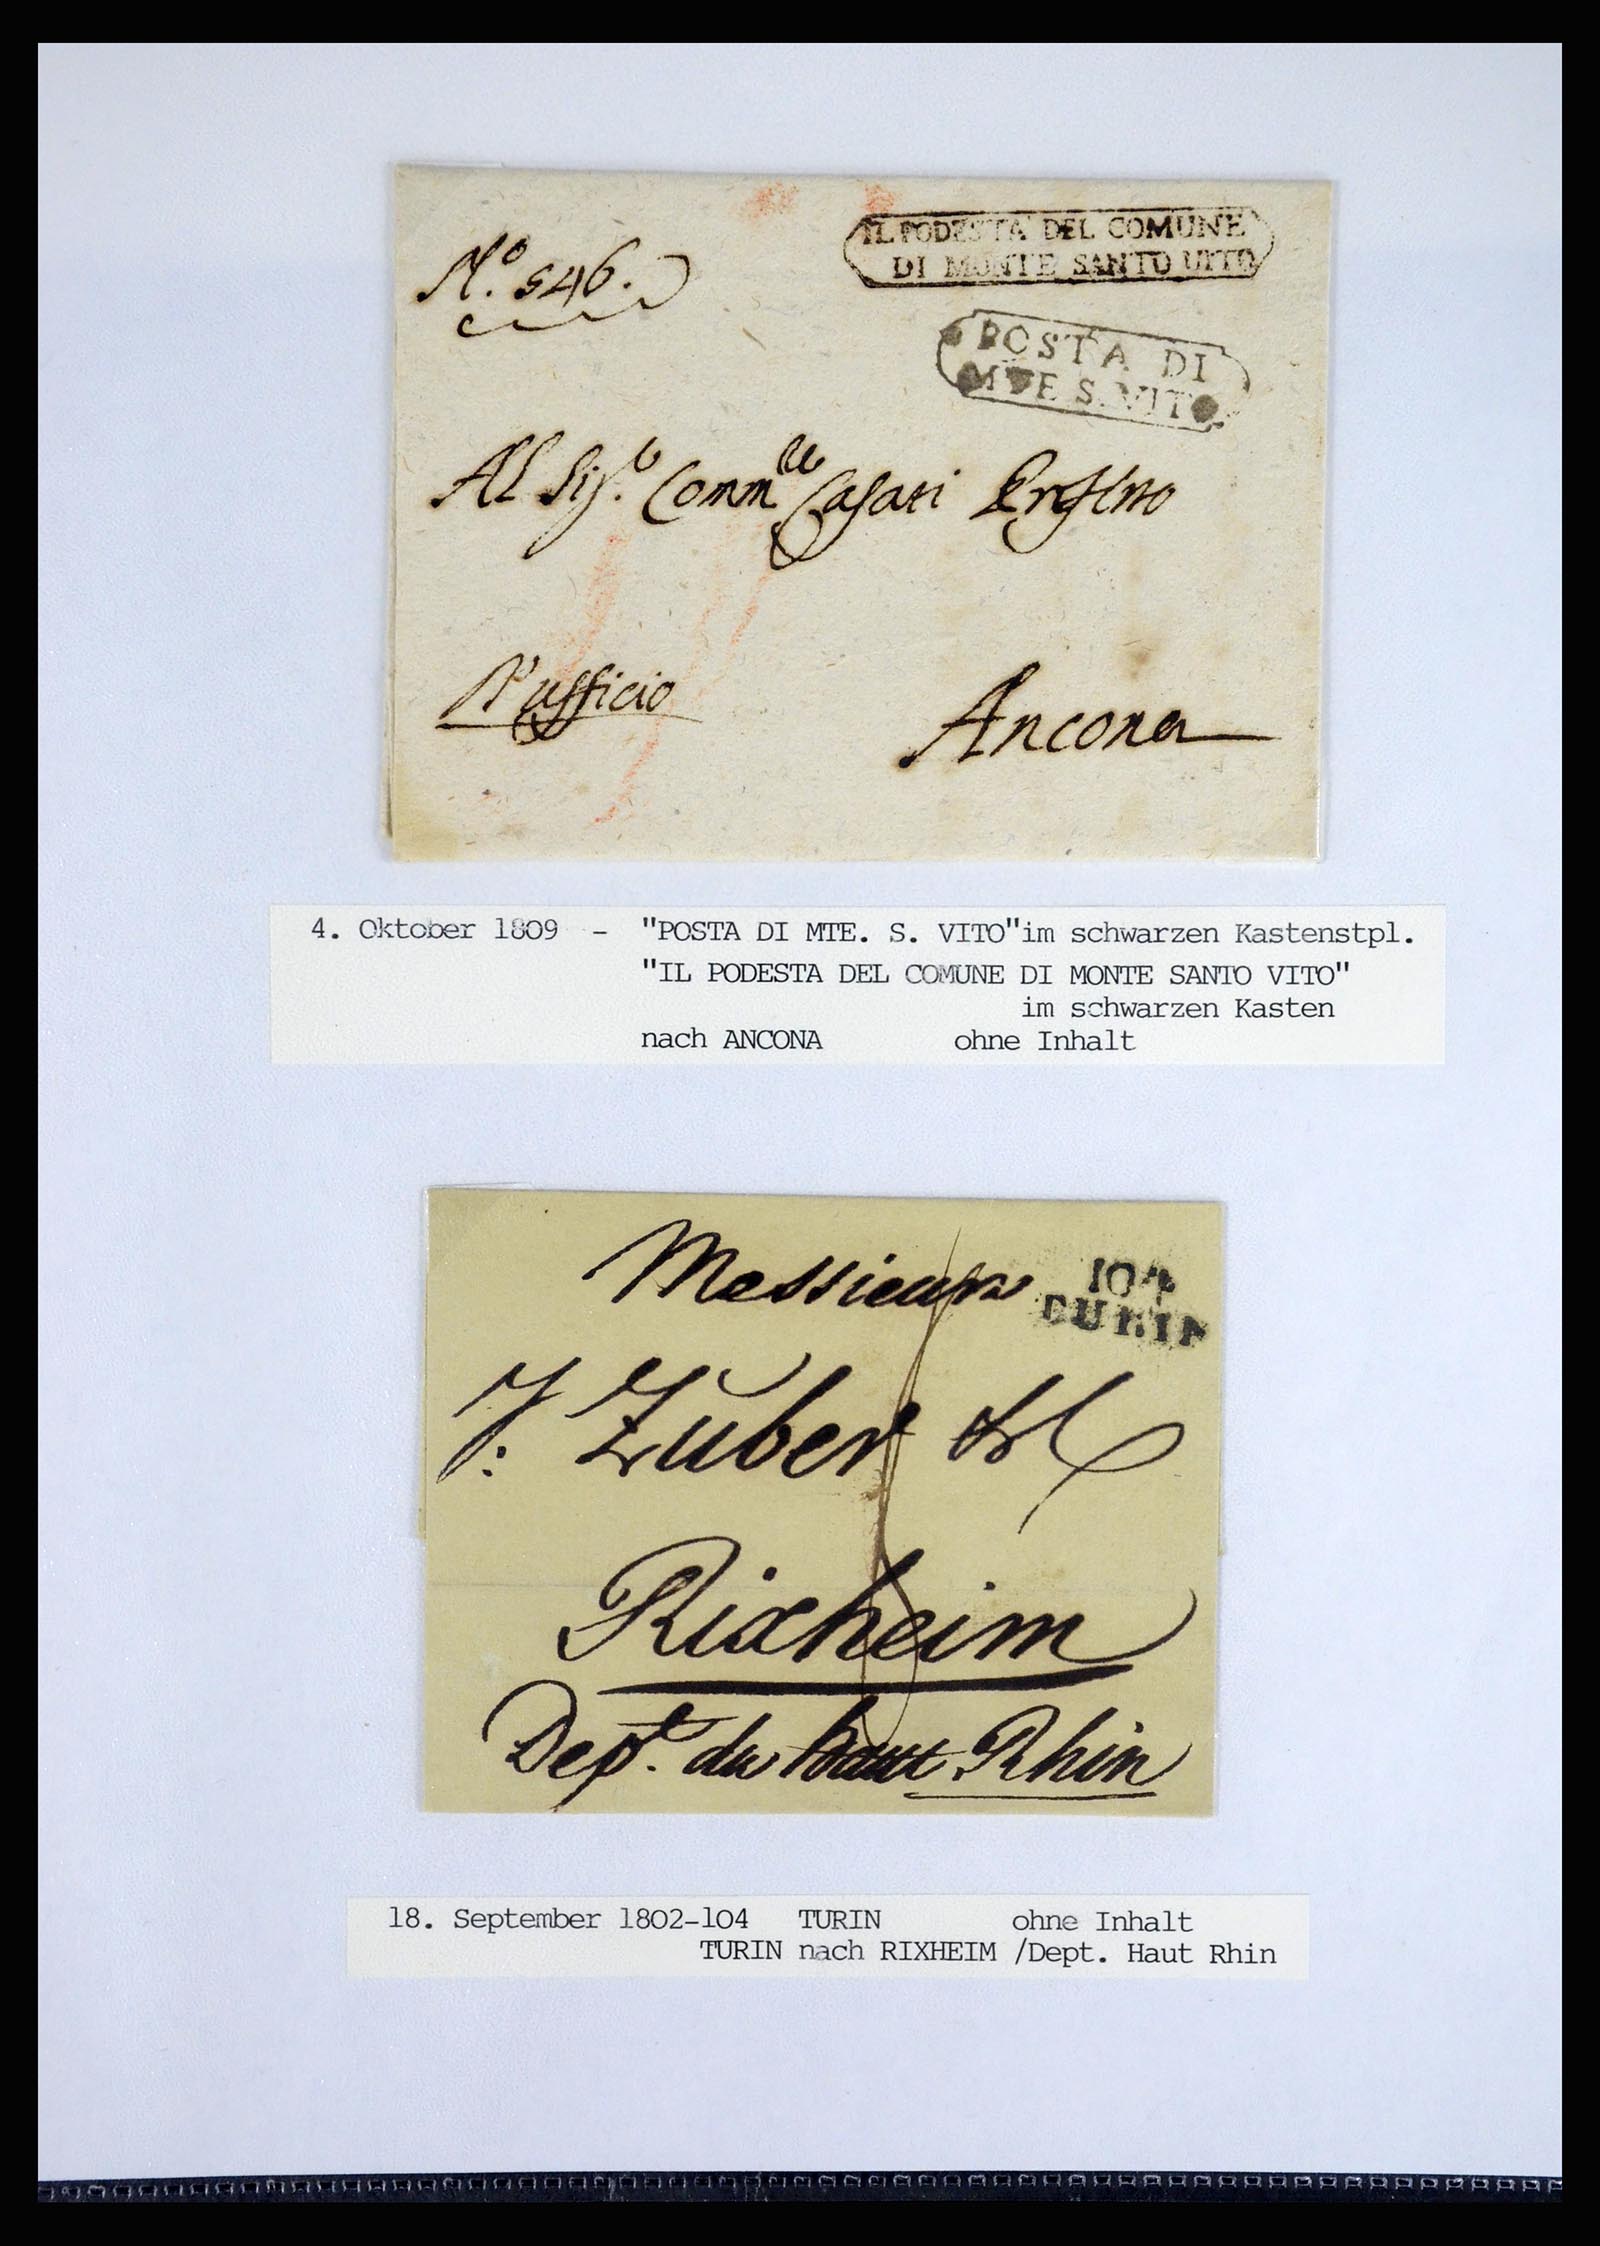 IL PODESTA DEL COMUNE
DI MONTE SANTO UITO
N.º 546.
POSTA DI
MTE S. VITO
Al Sig.
D'ufficio
Ancona
4. Oktober 1809 - "POSTA DI MTE. S. VITO"im schwarzen Kastenstpl.
"IL PODESTA DEL COMUNE DI MONTE SANTO VITO"
im schwarzen Kasten
nach ANCONA ohne Inhalt
Messieurs
104
TURIN
J: Zuber & C
Rixheim
Dept. du haut Rhin
18. September 1802-104 TURIN ohne Inhalt
TURIN nach RIXHEIM /Dept. Haut Rhin